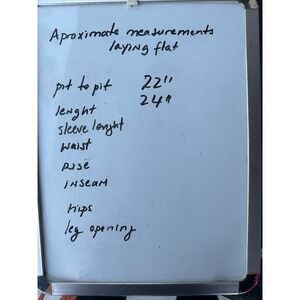 Aproximate measurements
laying flat
pit to pit 22"
lenght 24"
sleeve lenght
waist
rise
inseam
hips
leg opening